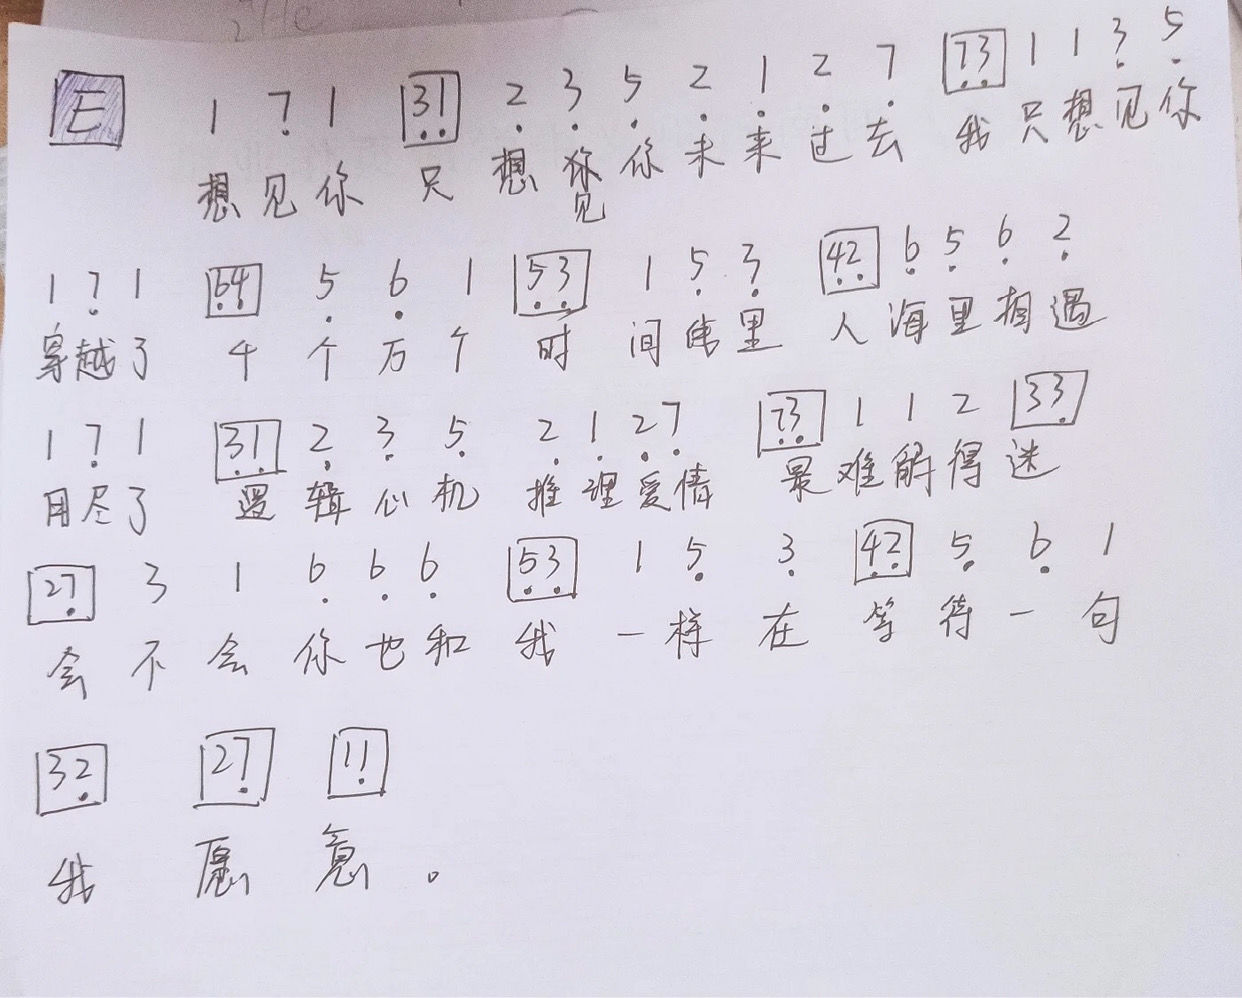 E 1 7 1 31 2 3 5 2 1 2 7 73 1 1 3 5
想见你 只 想 你 未 来 过 去 我 只 想 见 你
见
1 7 1 64 5 6 1 53 1 5 3 42 6 5 6 2
穿越了 千 个 万 个 时 间 线 里 人 海 里 相 遇
1 7 1 31 2 3 5 2 1 2 7 73 1 1 2 33
用尽了 逻 辑 心 机 推 理 爱 情 最 难 解 得 迷
27 3 1 6 6 6 53 1 5 3 42 5 6 1
会 不 会 你 也 和 我 一 样 在 等 待 一 句
32 27 11
我 愿 意 。